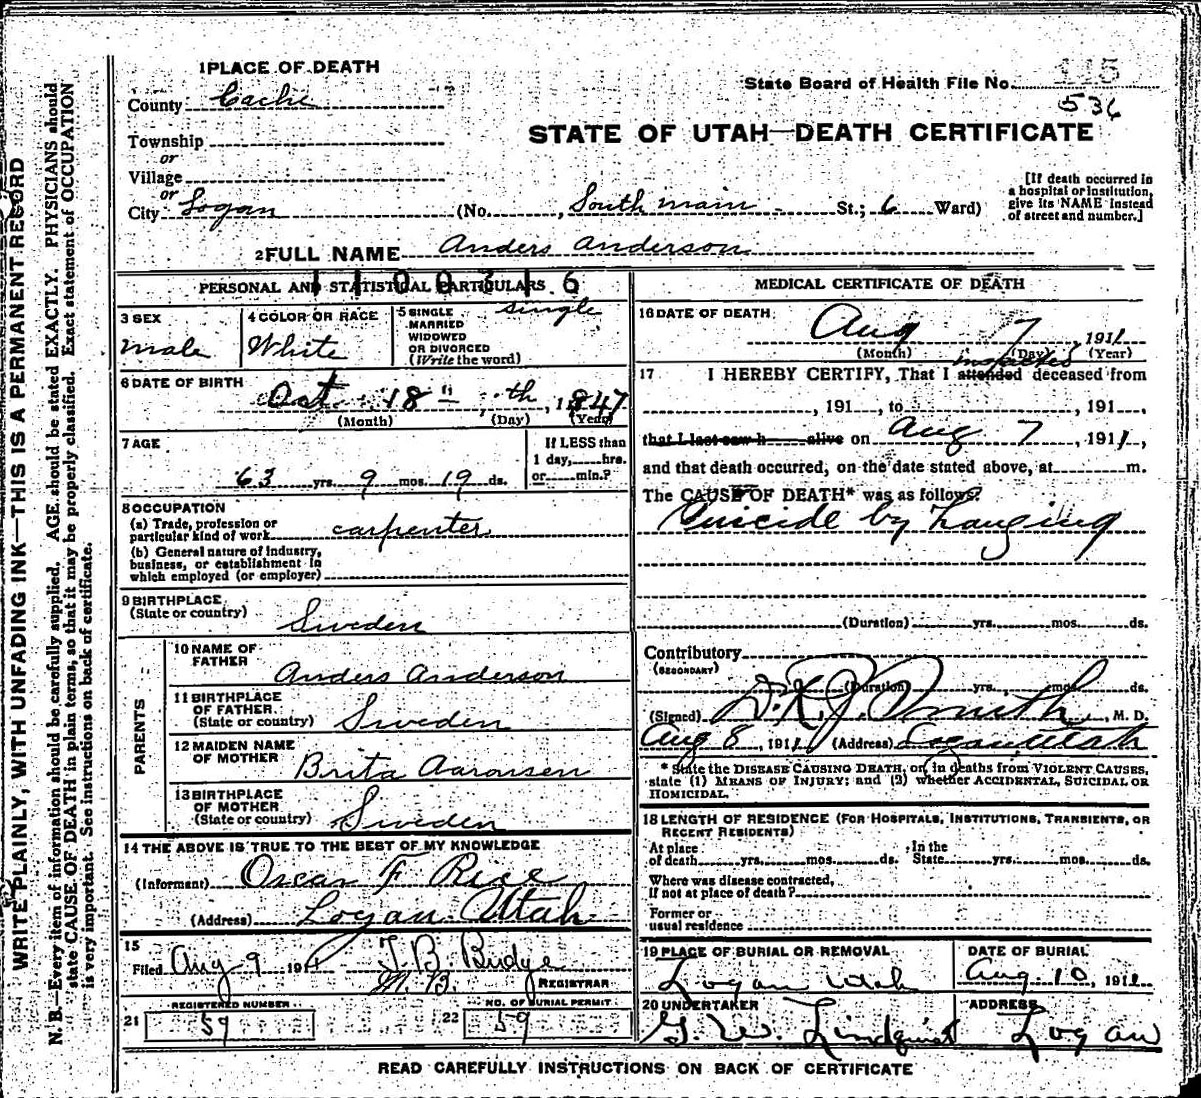 WRITE PLAINLY, WITH UNFADING INK—THIS IS A PERMANENT RECORD
N. B.—Every item of information should be carefully supplied. AGE should be stated EXACTLY. PHYSICIANS should
state CAUSE OF DEATH in plain terms, so that it may be properly classified. Exact statement of OCCUPATION
is very important. See instructions on back of certificate.
1 PLACE OF DEATH
County Cache
State Board of Health File No.
536
STATE OF UTAH—DEATH CERTIFICATE
Township
or
Village
or
City Logan (No. , South main St.; 6 Ward)
[If death occurred in
a hospital or institution,
give its NAME instead
of street and number.]
2 FULL NAME Anders Anderson
PERSONAL AND STATISTICAL PARTICULARS
1100316
3 SEX
male
4 COLOR OR RACE
White
5 SINGLE
MARRIED
WIDOWED
OR DIVORCED
(Write the word)
single
6 DATE OF BIRTH
Oct 18 th, 1847
(Month) (Day) (Year)
7 AGE
63 yrs. 9 mos. 19 ds.
If LESS than
1 day, hrs.
or min.?
8 OCCUPATION
(a) Trade, profession or
particular kind of work carpenter
(b) General nature of industry,
business, or establishment in
which employed (or employer)
9 BIRTHPLACE
(State or country) Sweden
PARENTS
10 NAME OF
FATHER Anders Anderson
11 BIRTHPLACE
OF FATHER
(State or country) Sweden
12 MAIDEN NAME
OF MOTHER Brita Aaronsen
13 BIRTHPLACE
OF MOTHER
(State or country) Sweden
14 THE ABOVE IS TRUE TO THE BEST OF MY KNOWLEDGE
(Informant) Oscar F Rice
(Address) Logan Utah
15
Filed Aug 9 1911 T. B. Budge
REGISTRAR
REGISTERED NUMBER
21 59
NO. OF BURIAL PERMIT
22 59
MEDICAL CERTIFICATE OF DEATH
16 DATE OF DEATH
Aug 7, 1911
(Month) (Day) (Year)
inspected
17 I HEREBY CERTIFY, That I attended deceased from
, 191 , to , 191 ,
that I last saw h alive on Aug 7, 1911,
and that death occurred, on the date stated above, at m.
The CAUSE OF DEATH* was as follows:
Suicide by hanging
(Duration) yrs. mos. ds.
Contributory
(SECONDARY)
(Duration) yrs. mos. ds.
(Signed) Smith, M. D.
Aug 8, 1911 (Address) Logan Utah
* State the DISEASE CAUSING DEATH, or, in deaths from VIOLENT CAUSES,
state (1) MEANS OF INJURY; and (2) whether ACCIDENTAL, SUICIDAL OR
HOMICIDAL.
18 LENGTH OF RESIDENCE (FOR HOSPITALS, INSTITUTIONS, TRANSIENTS, OR
RECENT RESIDENTS)
At place
of death yrs. mos. ds.
In the
State yrs. mos. ds.
Where was disease contracted,
if not at place of death?
Former or
usual residence
19 PLACE OF BURIAL OR REMOVAL
Logan Utah
DATE OF BURIAL
Aug. 10, 1911
20 UNDERTAKER
G. W. Lindquist
ADDRESS
Logan
READ CAREFULLY INSTRUCTIONS ON BACK OF CERTIFICATE